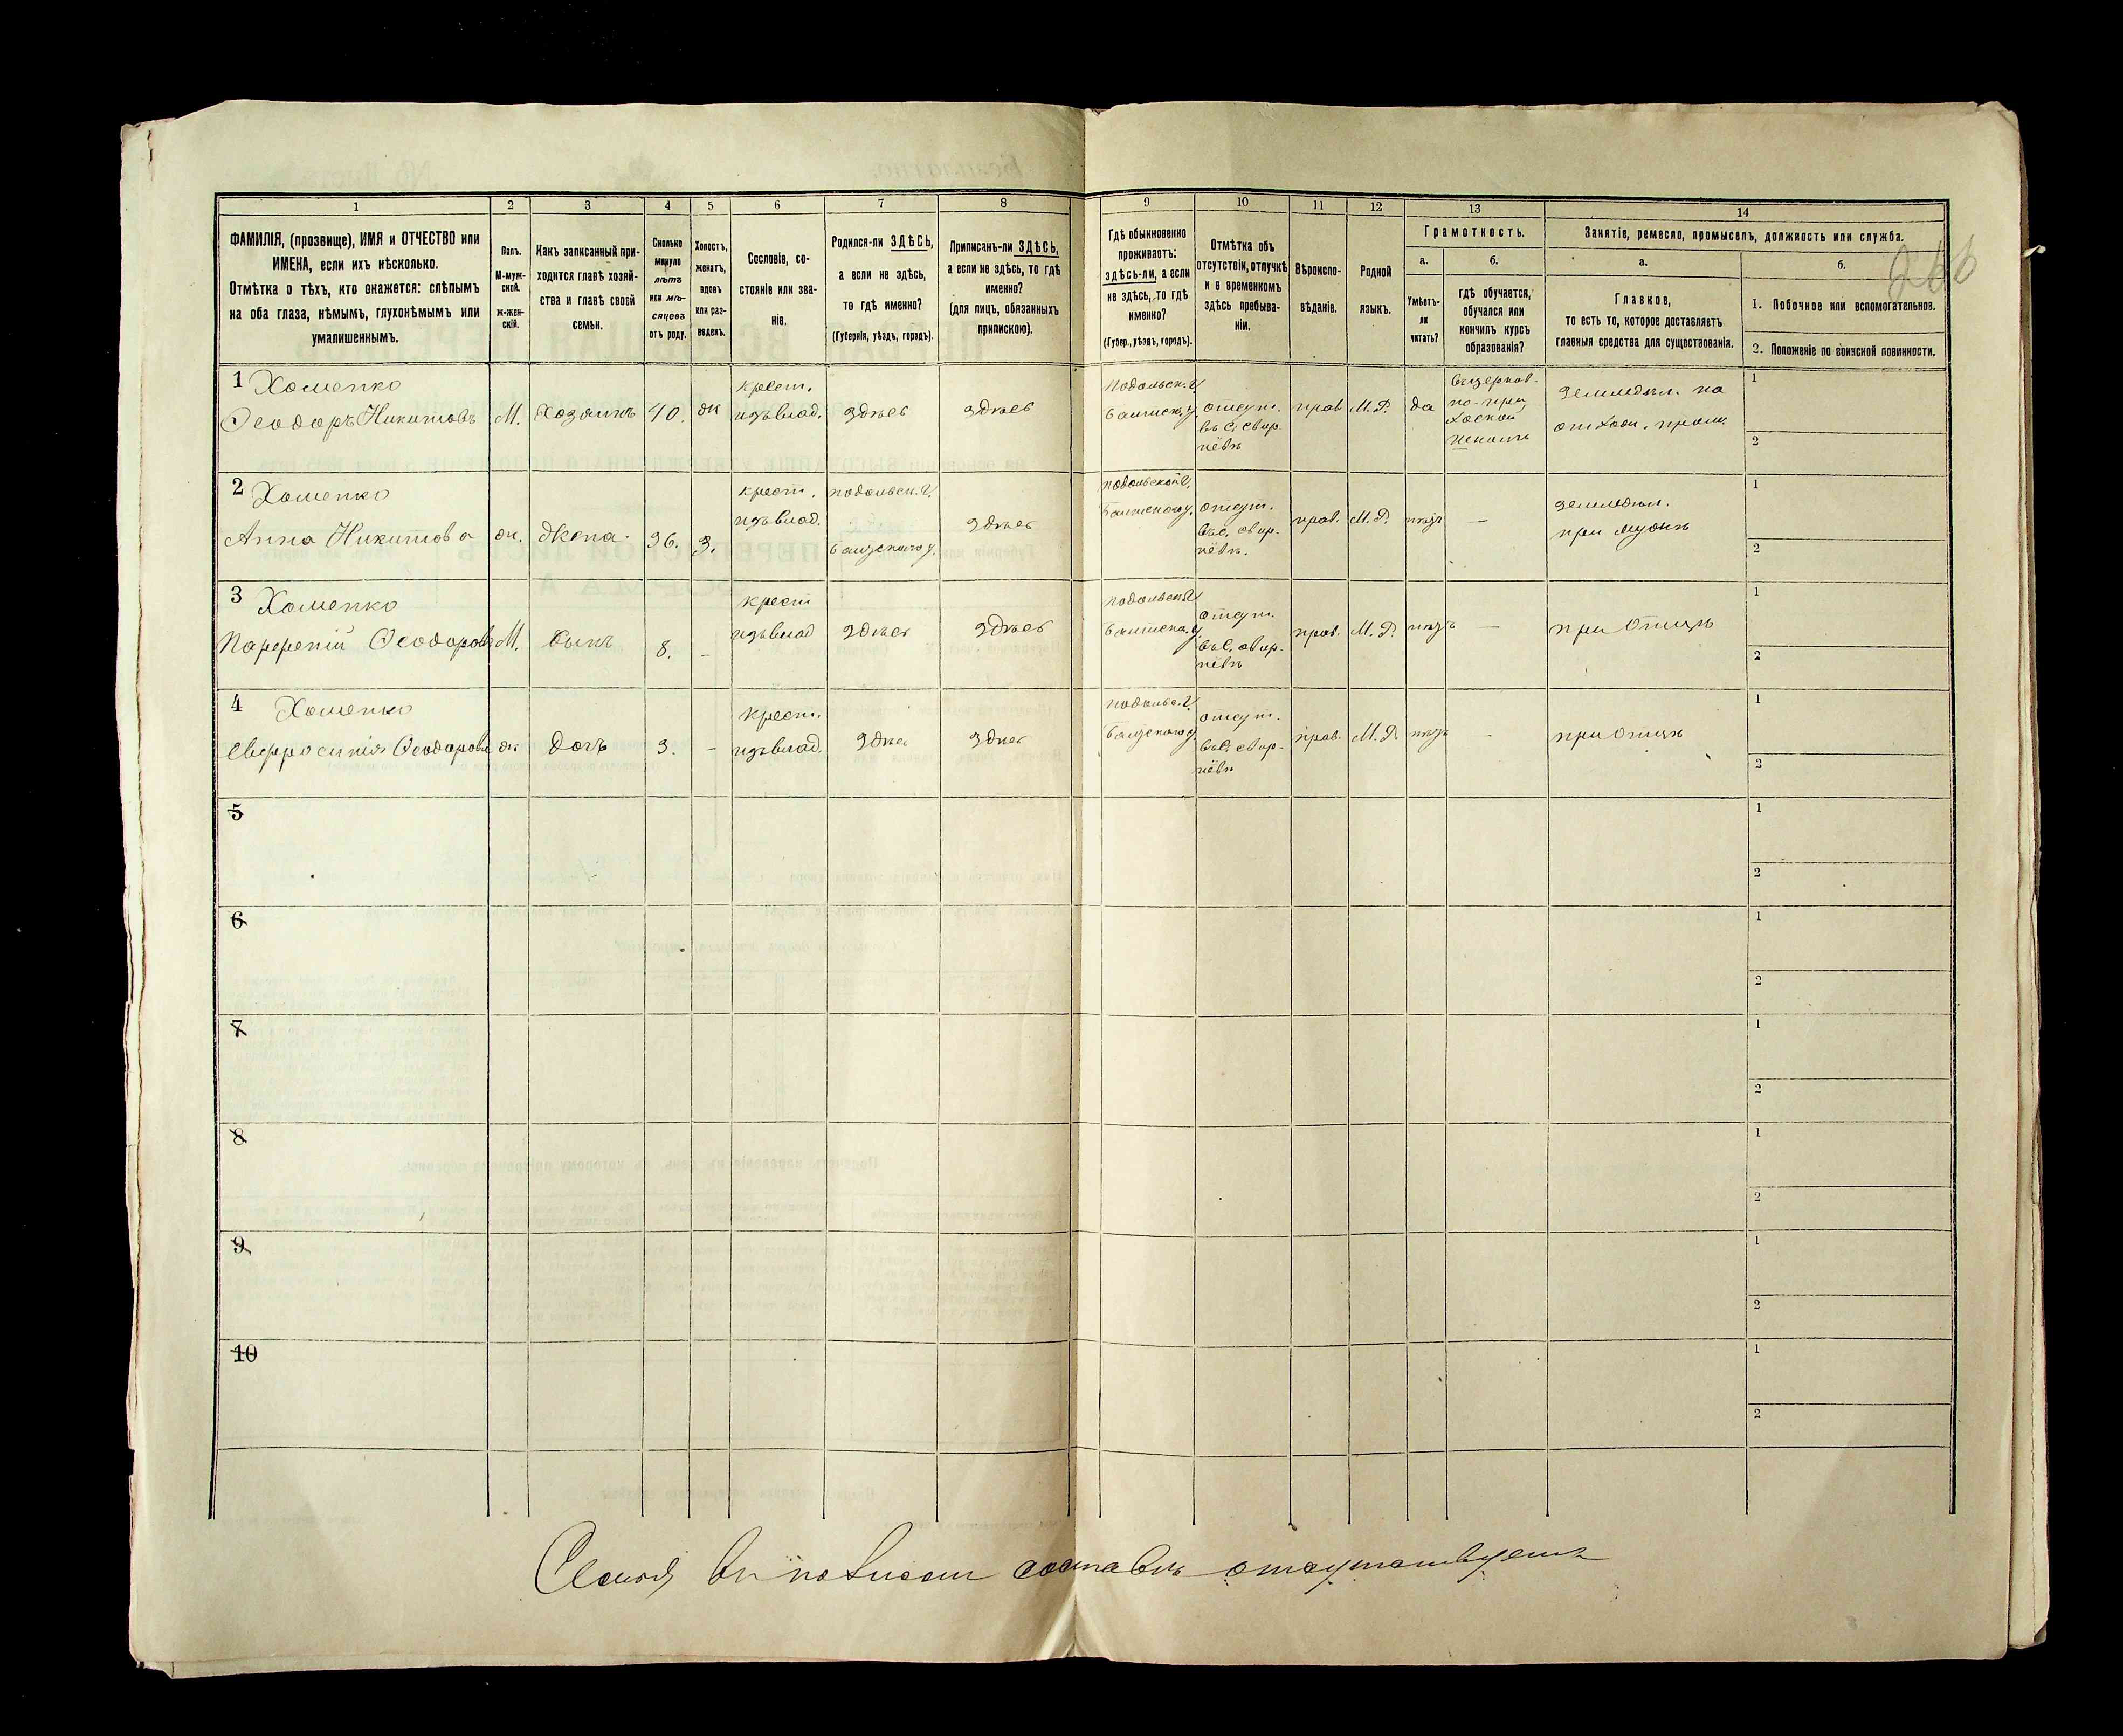 266
1 2 3 4 5 6 7 8 9 10 11 12 13 14
ФАМИЛІЯ, (прозвище), ИМЯ и ОТЧЕСТВО или
ИМЕНА, если ихъ нѣсколько.
Отмѣтка о тѣхъ, кто окажется: слѣпымъ
на оба глаза, нѣмымъ, глухонѣмымъ или
умалишеннымъ.
Полъ.
М-муж-
ской.
ж-жен-
скій.
Какъ записанный при-
ходится главѣ хозяй-
ства и главѣ своей
семьи.
Сколько
минуло
лѣтъ
или мѣ-
сяцевъ
отъ роду.
Холостъ,
женатъ,
вдовъ
или раз-
веденъ.
Сословіе, со-
стояніе или зва-
ніе.
Родился-ли ЗДѢСЬ,
а если не здѣсь,
то гдѣ именно?
(Губернія, уѣздъ, городъ).
Приписанъ-ли ЗДѢСЬ,
а если не здѣсь, то гдѣ
именно?
(для лицъ, обязанныхъ
припискою).
Гдѣ обыкновенно
проживаетъ:
здѣсь-ли, а если
не здѣсь, то гдѣ
именно?
(Губер., уѣздъ, городъ).
Отмѣтка объ
отсутствіи, отлучкѣ
и о временномъ
здѣсь пребыва-
ніи.
Вѣроиспо-
вѣданіе.
Родной
языкъ.
Грамотность.
а.
Умѣетъ-
ли
читать?
б.
гдѣ обучается,
обучался или
кончилъ курсъ
образованія?
Занятіе, ремесло, промыселъ, должность или служба.
а.
Главное,
то есть то, которое доставляетъ
главныя средства для существованія.
б.
1. Побочное или вспомогательное.
2. Положеніе по воинской повинности.
1 Хоменко
Ѳеодоръ Никитовъ
М.
Хозяинъ
40.
ж
крест.
изъ влад.
здѣсь
здѣсь
Подольск. г.
Балтск. у.
отсут.
въ с. Свир-
нёвѣ
прав
М. Р.
да
въ церков-
но-при
ходской
школѣ
Земледѣл. на
отхож. промы
1
2
2 Хоменко
Анна Никитова
ж.
жена.
36.
З.
крест.
изъ влад.
Подольск. г.
Балтскаго у.
здѣсь
Подольской г.
Балтскаго у.
отсут.
въ с. Свир-
нёвѣ.
прав.
М. Р.
нѣтъ
—
Земледѣл.
при мужѣ
1
2
3 Хоменко
Парфеній Ѳеодоровъ
М.
сынъ
8.
-
крест
изъ влад
здѣсь
здѣсь
Подольск. г.
Балтска. у.
отсут.
въ с. Свир-
нёвѣ
прав.
М. Р.
нѣтъ
—
при отцѣ
1
2
4 Хоменко
Евфросинія Ѳеодорова
ж
дочь
3.
-
крест.
изъ влад.
здѣсь
здѣсь
Подольс. г.
Балтскаго у.
отсут.
въ с. Свир-
нёвѣ
прав.
М. Р.
нѣтъ
-
при отцѣ
1
2
5
1
2
6
1
2
7
1
2
8
1
2
9
1
2
10
1
2
Семья въ полномъ составѣ отсутствуетъ